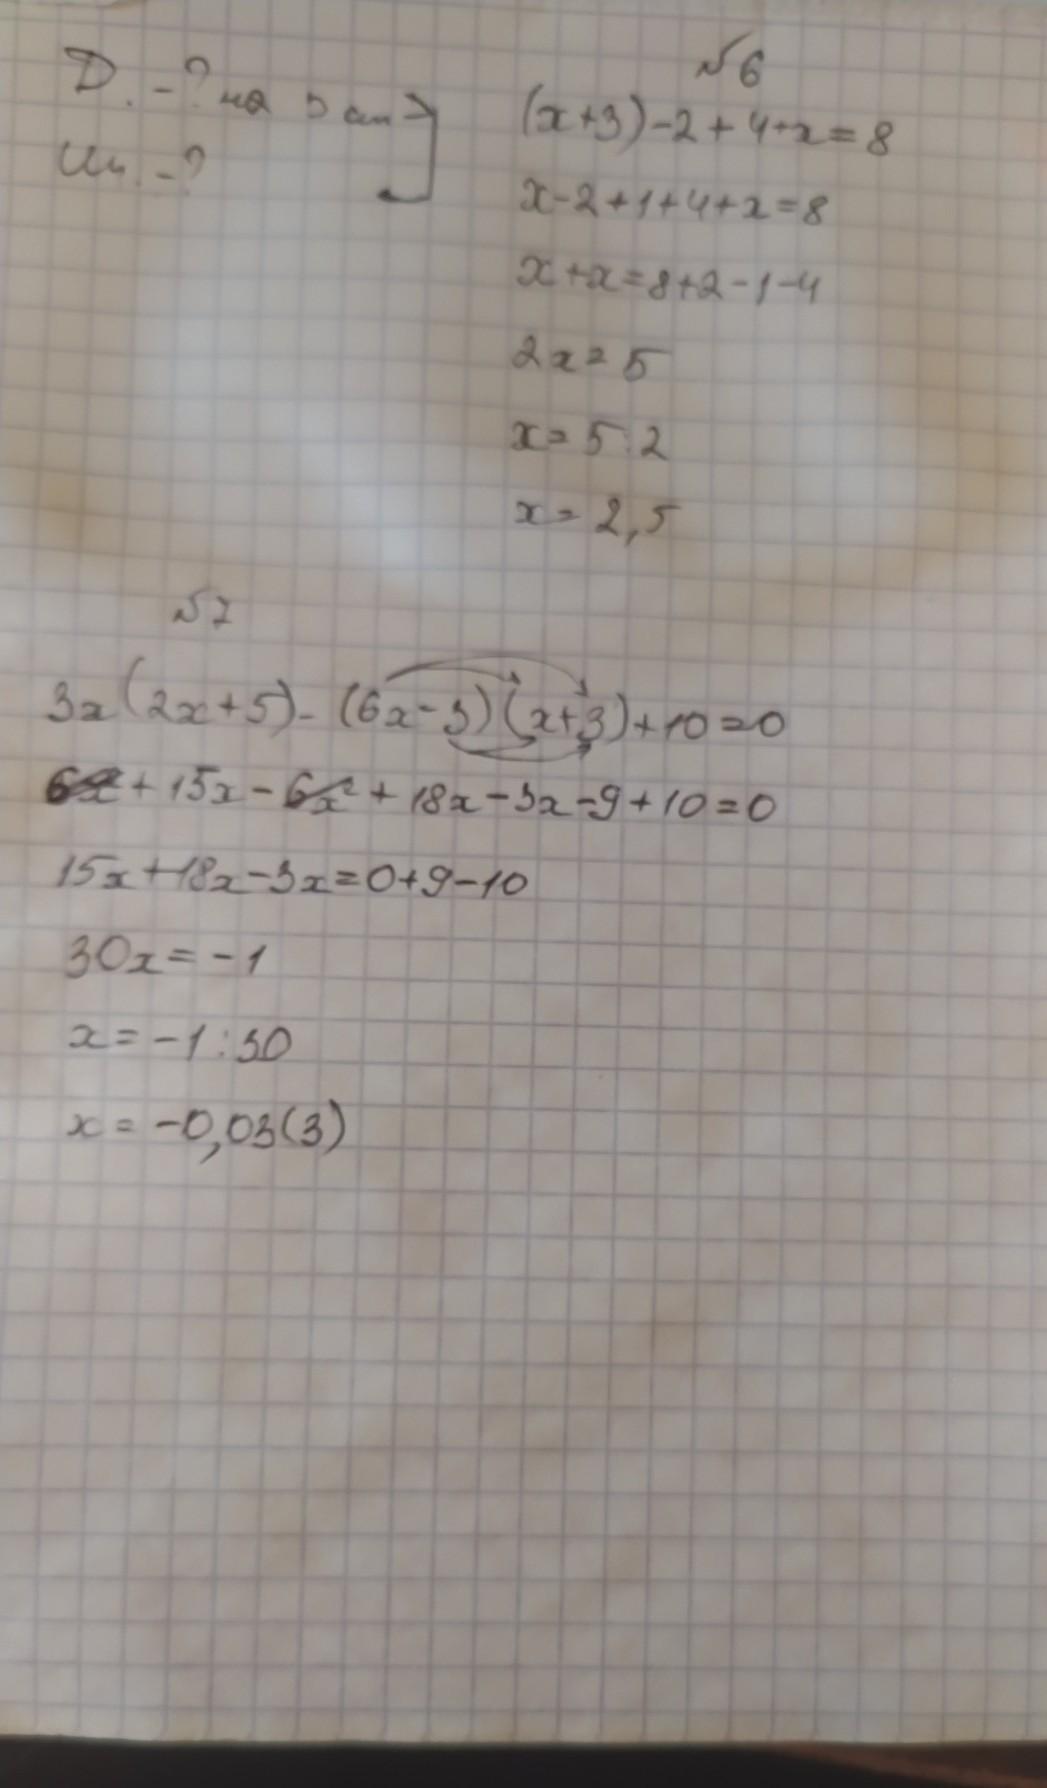 Д. -? на 3 см
Ш. -?
№6
(x+3)-2+4+x=8
x-2+1+4+x=8
x+x=8+2-1-4
2x=5
x=5:2
x=2,5
№7
3x(2x+5)-(6x-3)(x+3)+10=0
6x²+15x-6x²+18x-3x-9+10=0
15x+18x-3x=0+9-10
30x=-1
x=-1:30
x=-0,03(3)